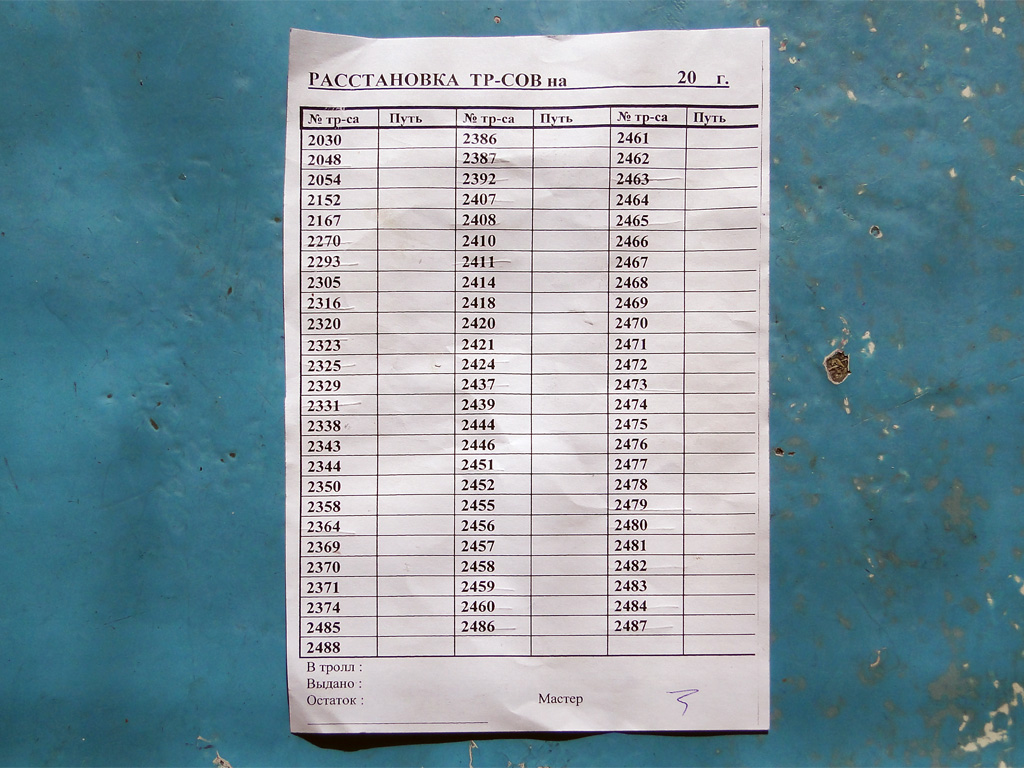 РАССТАНОВКА ТР-СОВ на 20 г.
№ тр-са Путь № тр-са Путь № тр-са Путь
2030 2386 2461
2048 2387 2462
2054 2392 2463
2152 2407 2464
2167 2408 2465
2270 2410 2466
2293 2411 2467
2305 2414 2468
2316 2418 2469
2320 2420 2470
2323 2421 2471
2325 2424 2472
2329 2437 2473
2331 2439 2474
2338 2444 2475
2343 2446 2476
2344 2451 2477
2350 2452 2478
2358 2455 2479
2364 2456 2480
2369 2457 2481
2370 2458 2482
2371 2459 2483
2374 2460 2484
2485 2486 2487
2488
В тролл :
Выдано :
Остаток : Мастер